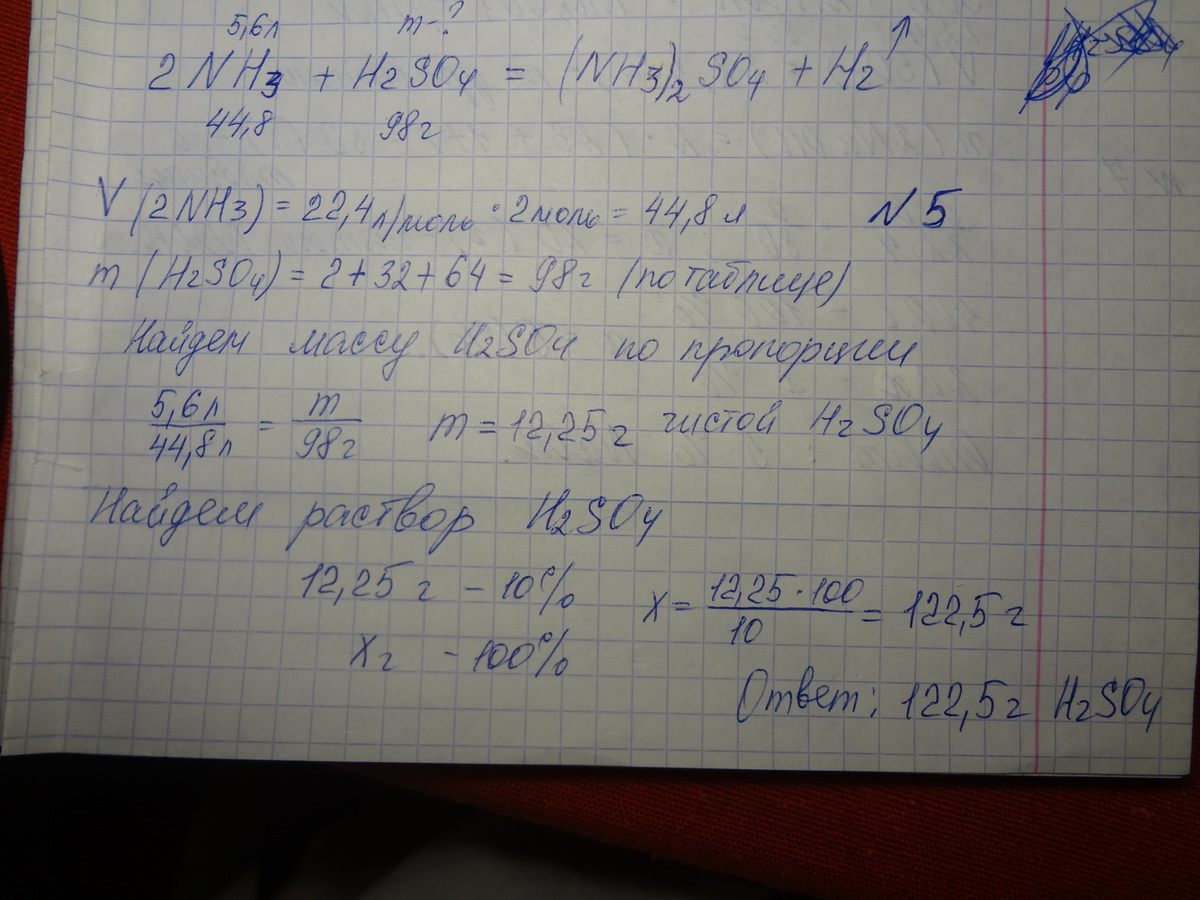 5,6л m-?
2NH3 + H2SO4 = (NH3)2SO4 + H2↑
44,8 98г
V(2NH3) = 22,4л/моль · 2моль = 44,8 л N5
m(H2SO4) = 2+32+64 = 98г (по таблице)
Найдем массу H2SO4 по пропорции
5,6л/44,8л = m/98г m = 12,25г чистой H2SO4
Найдем раствор H2SO4
12,25г - 10% x = 12,25·100/10 = 122,5г
xг - 100%
Ответ: 122,5г H2SO4